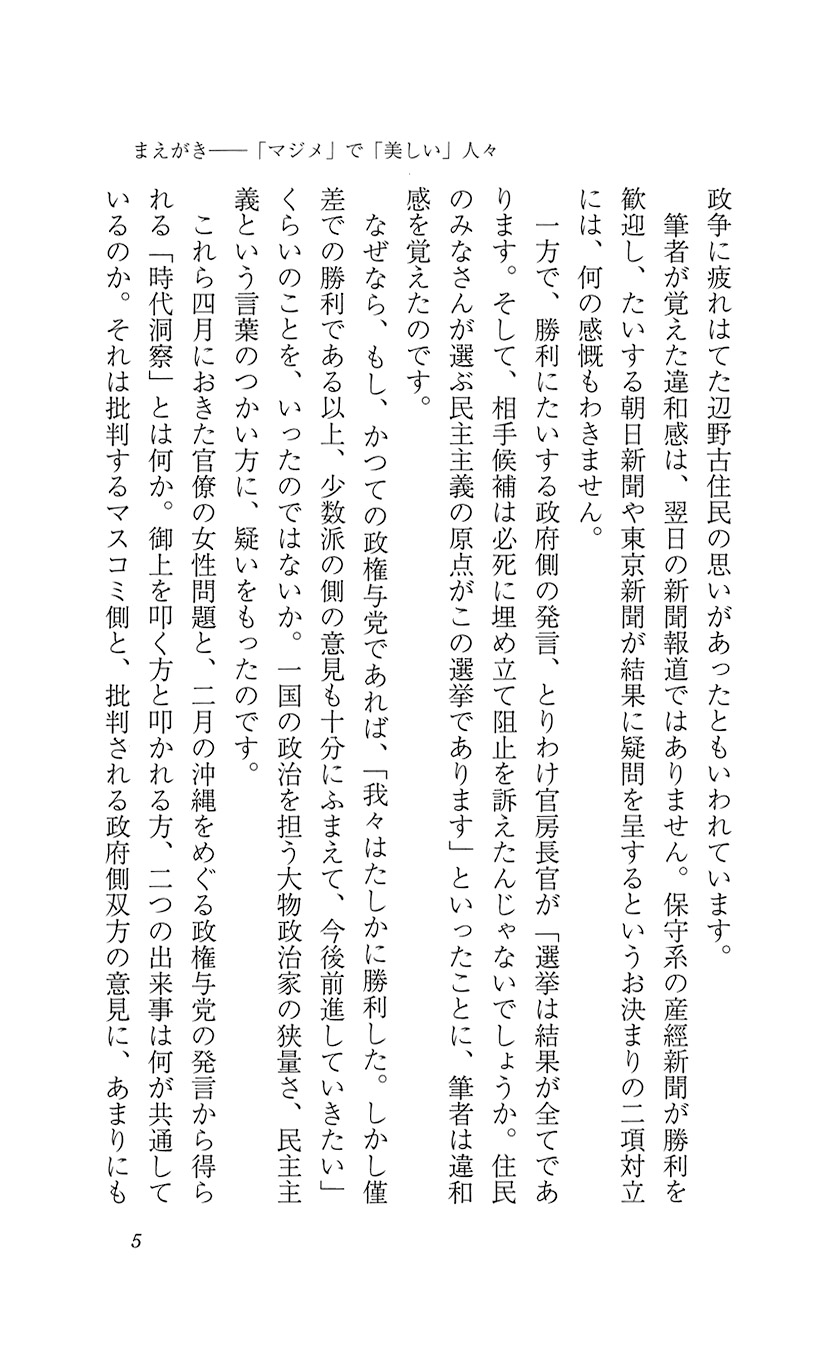 まえがき――「マジメ」で「美しい」人々
政争に疲れはてた辺野古住民の思いがあったともいわれています。
筆者が覚えた違和感は、翌日の新聞報道ではありません。保守系の産経新聞が勝利を
歓迎し、たいする朝日新聞や東京新聞が結果に疑問を呈するというお決まりの二項対立
には、何の感慨もわきません。
一方で、勝利にたいする政府側の発言、とりわけ官房長官が「選挙は結果が全てであ
ります。そして、相手候補は必死に埋め立て阻止を訴えたんじゃないでしょうか。住民
のみなさんが選ぶ民主主義の原点がこの選挙であります」といったことに、筆者は違和
感を覚えたのです。
なぜなら、もし、かつての政権与党であれば、「我々はたしかに勝利した。しかし僅
差での勝利である以上、少数派の側の意見も十分にふまえて、今後前進していきたい」
くらいのことを、いったのではないか。一国の政治を担う大物政治家の狭量さ、民主主
義という言葉のつかい方に、疑いをもったのです。
これら四月におきた官僚の女性問題と、二月の沖縄をめぐる政権与党の発言から得ら
れる「時代洞察」とは何か。御上を叩く方と叩かれる方、二つの出来事は何が共通して
いるのか。それは批判するマスコミ側と、批判される政府側双方の意見に、あまりにも
5